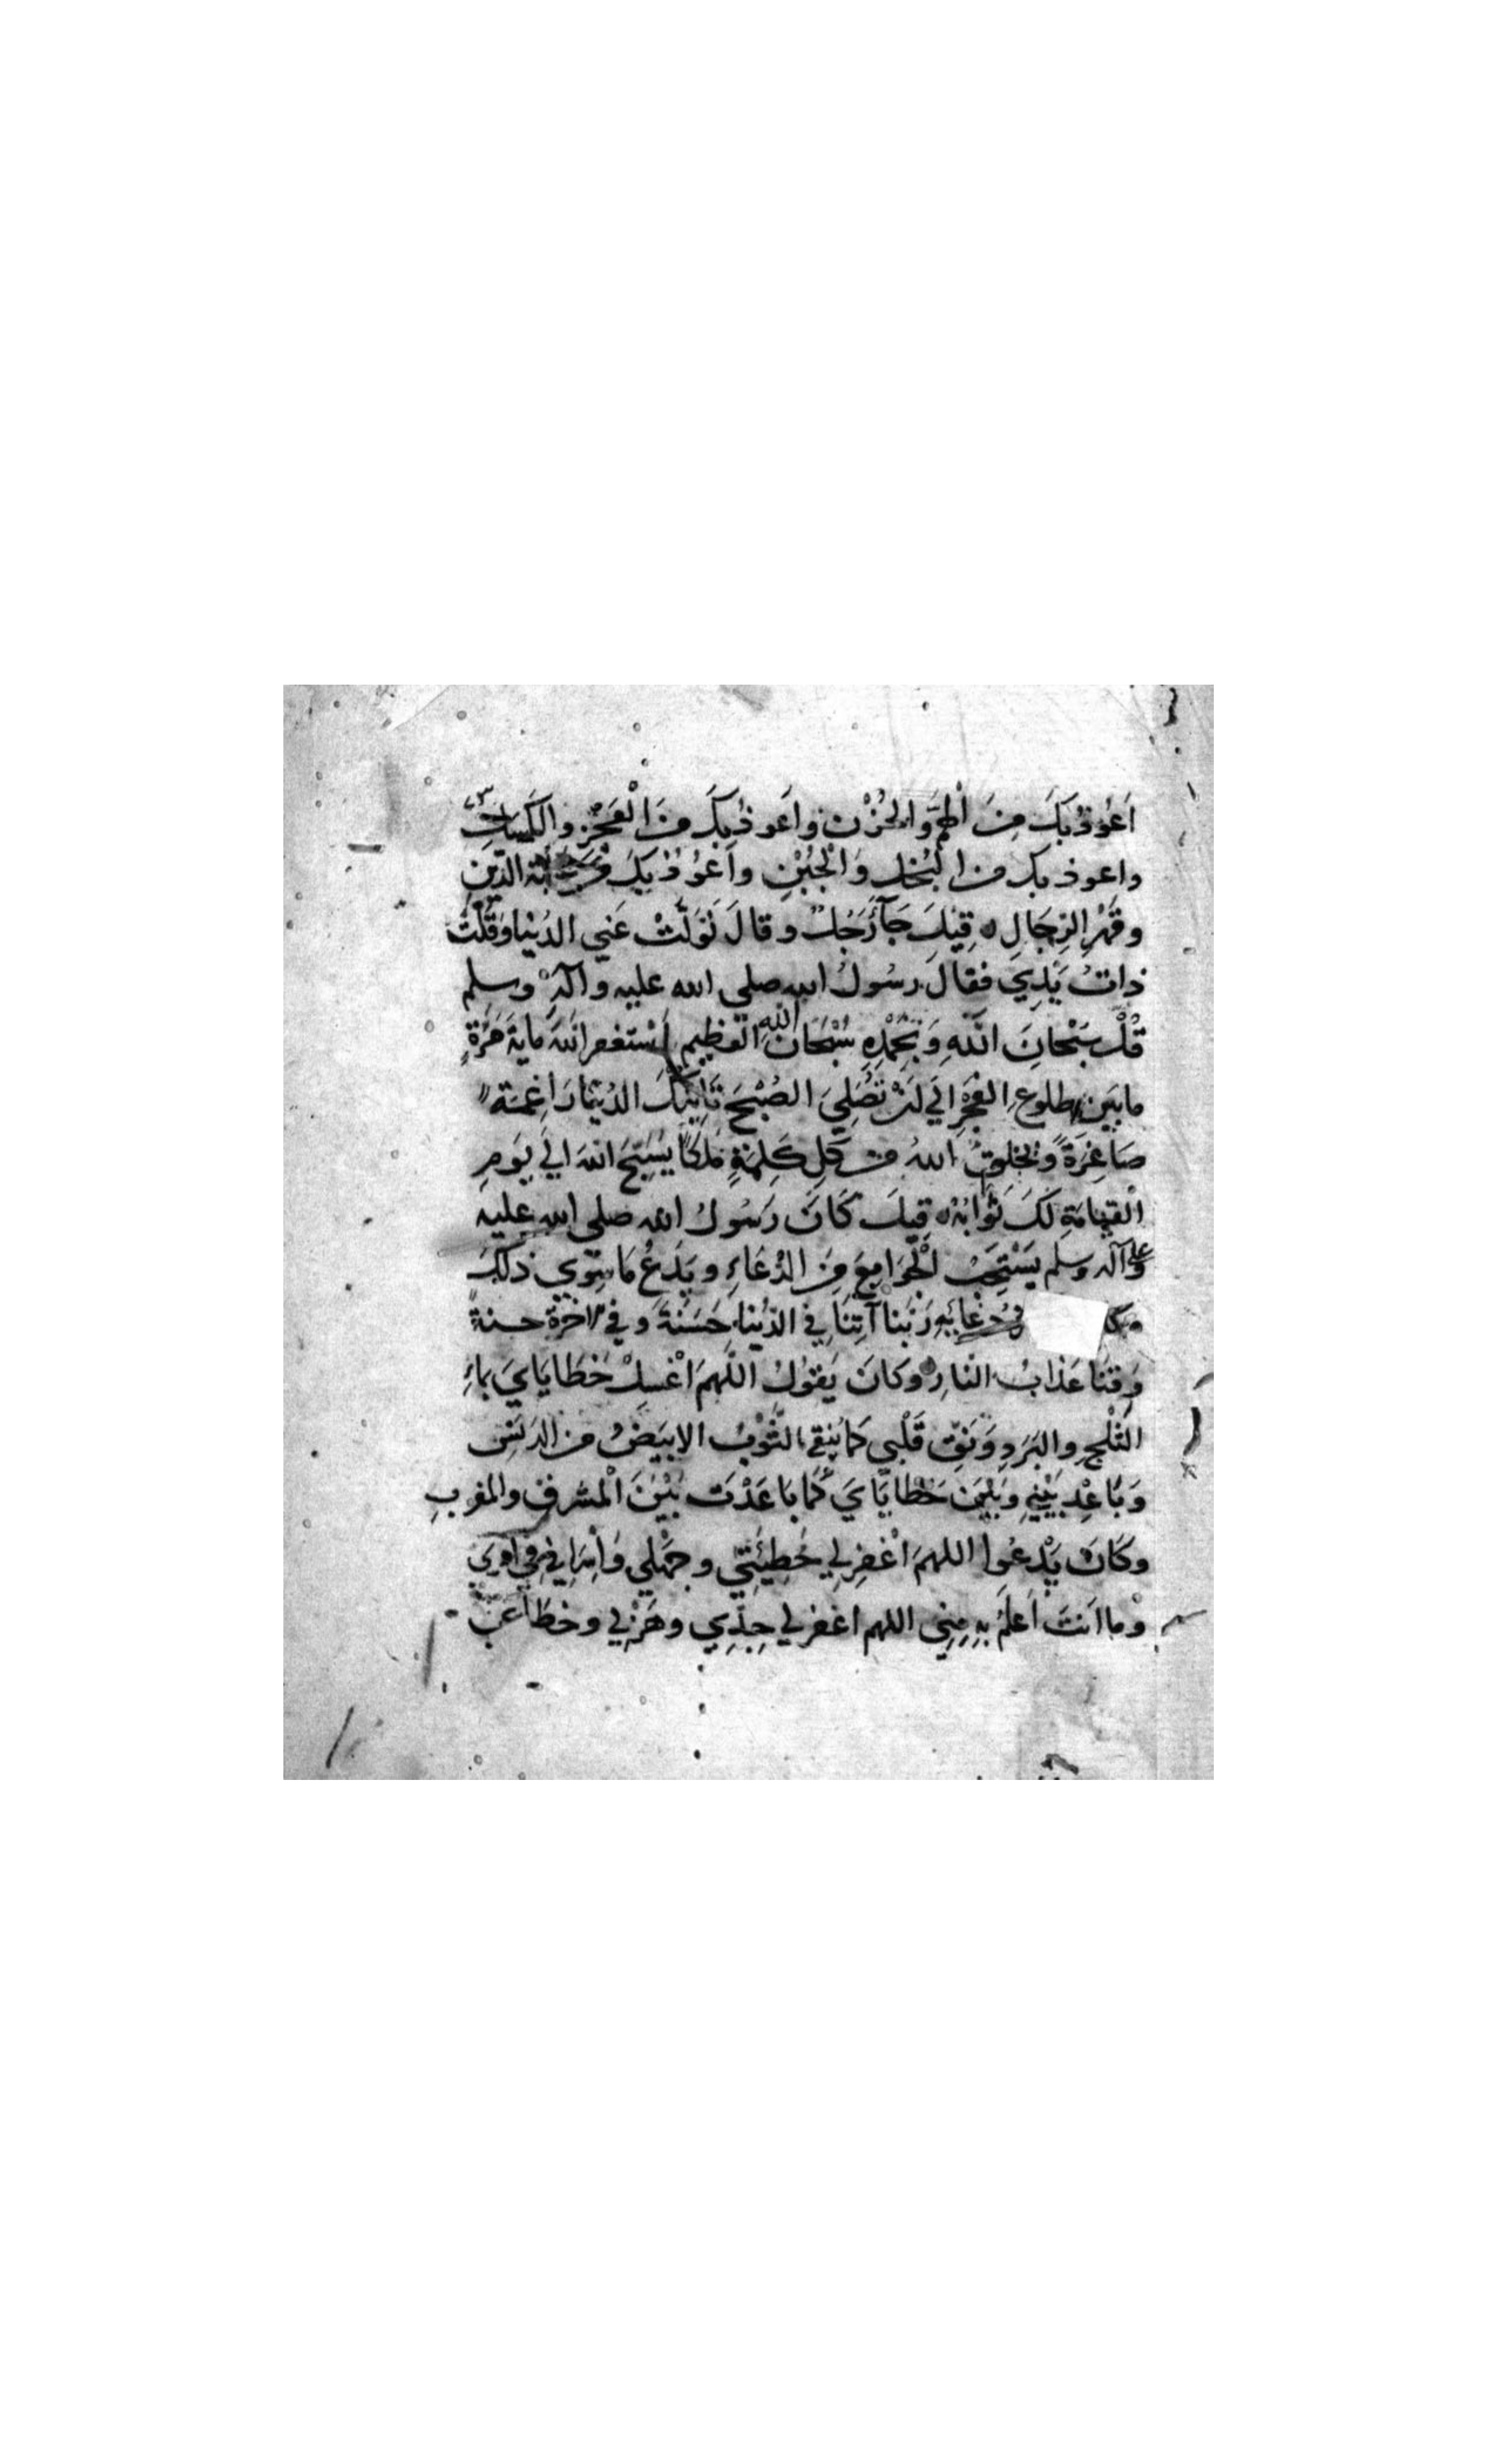 اَعُوذُ بِكَ مِنَ الْهَمِّ وَالحُزْن وَاَعوذُ بِكَ مِنَ الْعَجْزِ والكَسَلِ
واعوذ بك من البُخْلِ وَالْجُبْنِ واَعُوْذُ بِكَ مِنْ غَلَبَة الدَّيْنِ
وقَهْرِ الرِّجَالِ ه قِيْلَ جَآءَ رَجُلٌ وقالَ تَوَلَّتْ عَنِّي الدُنْيا وَقَلَّتْ
ذاتُ يَدِي فقالَ رسُولُ الله صلي الله عليه وآلهِ وسلم
قُلْ سُبْحَانَ اللهِ وَبِحَمْدِهِ سُبْحَانَ اللهِ العَظِيمِ اَسْتَغفر اللهَ مايةَ مَرَّةٍ
ما بَيْنَ طلوعِ الفَجْرِ اِلَي اَنْ تُصَلِّيَ الصُبْحَ تَاْتِيْكَ الدُنْيَا رَاغِمَةً
صَاغِرَةً وَيَخْلِقُ اللهُ من كُلِّ كَلِمَةٍ مَلَكًا يُسَبِّحُ اللهَ الَي يَومِ
الْقِيَامَةِ لَكَ ثَوَابُهُ ه قِيلَ كَانَ رَسُولُ الله صلي الله عليه
وعلي آله وسلم يَسْتَحِبُّ الْجَوَامِعَ مِنَ الدُعَاءِ ويَدَعُ مَا سِوَي ذلكَ
وكا في دُعَايِهِ رَبَّنا آتِنَا فِي الدُنْيا حَسَنَةً وَفي الاخرة حسنةً
وَقِنَا عَذابَ النارِ وكانَ يَقُولُ اللَّهُمَ اغْسِلْ خَطَايَايَ بماءِ
الثَلْجِ والبَرَدِ وَنَقِّ قَلْبِي كَمَا يُنَقَي الثَّوْبُ الابيَضُ من الدَنَسِ
وَبَاعِدْ بَيْنِي وَبَيْنَ خَطايَايَ كَمَا بَاعَدْتَ بَيْنَ الْمَشرق والمغربِ
وكَانَ يَدْعُوا اللهمَ اغْفِرْ لِي خَطِيْئَتِي وجَهْلِي وَاِسْرَافي في امري
وَما اَنتَ اَعْلَمُ بِهِ مِنِّي اللهم اغفر لي جِدِّي وهَزْلي وخطاءي